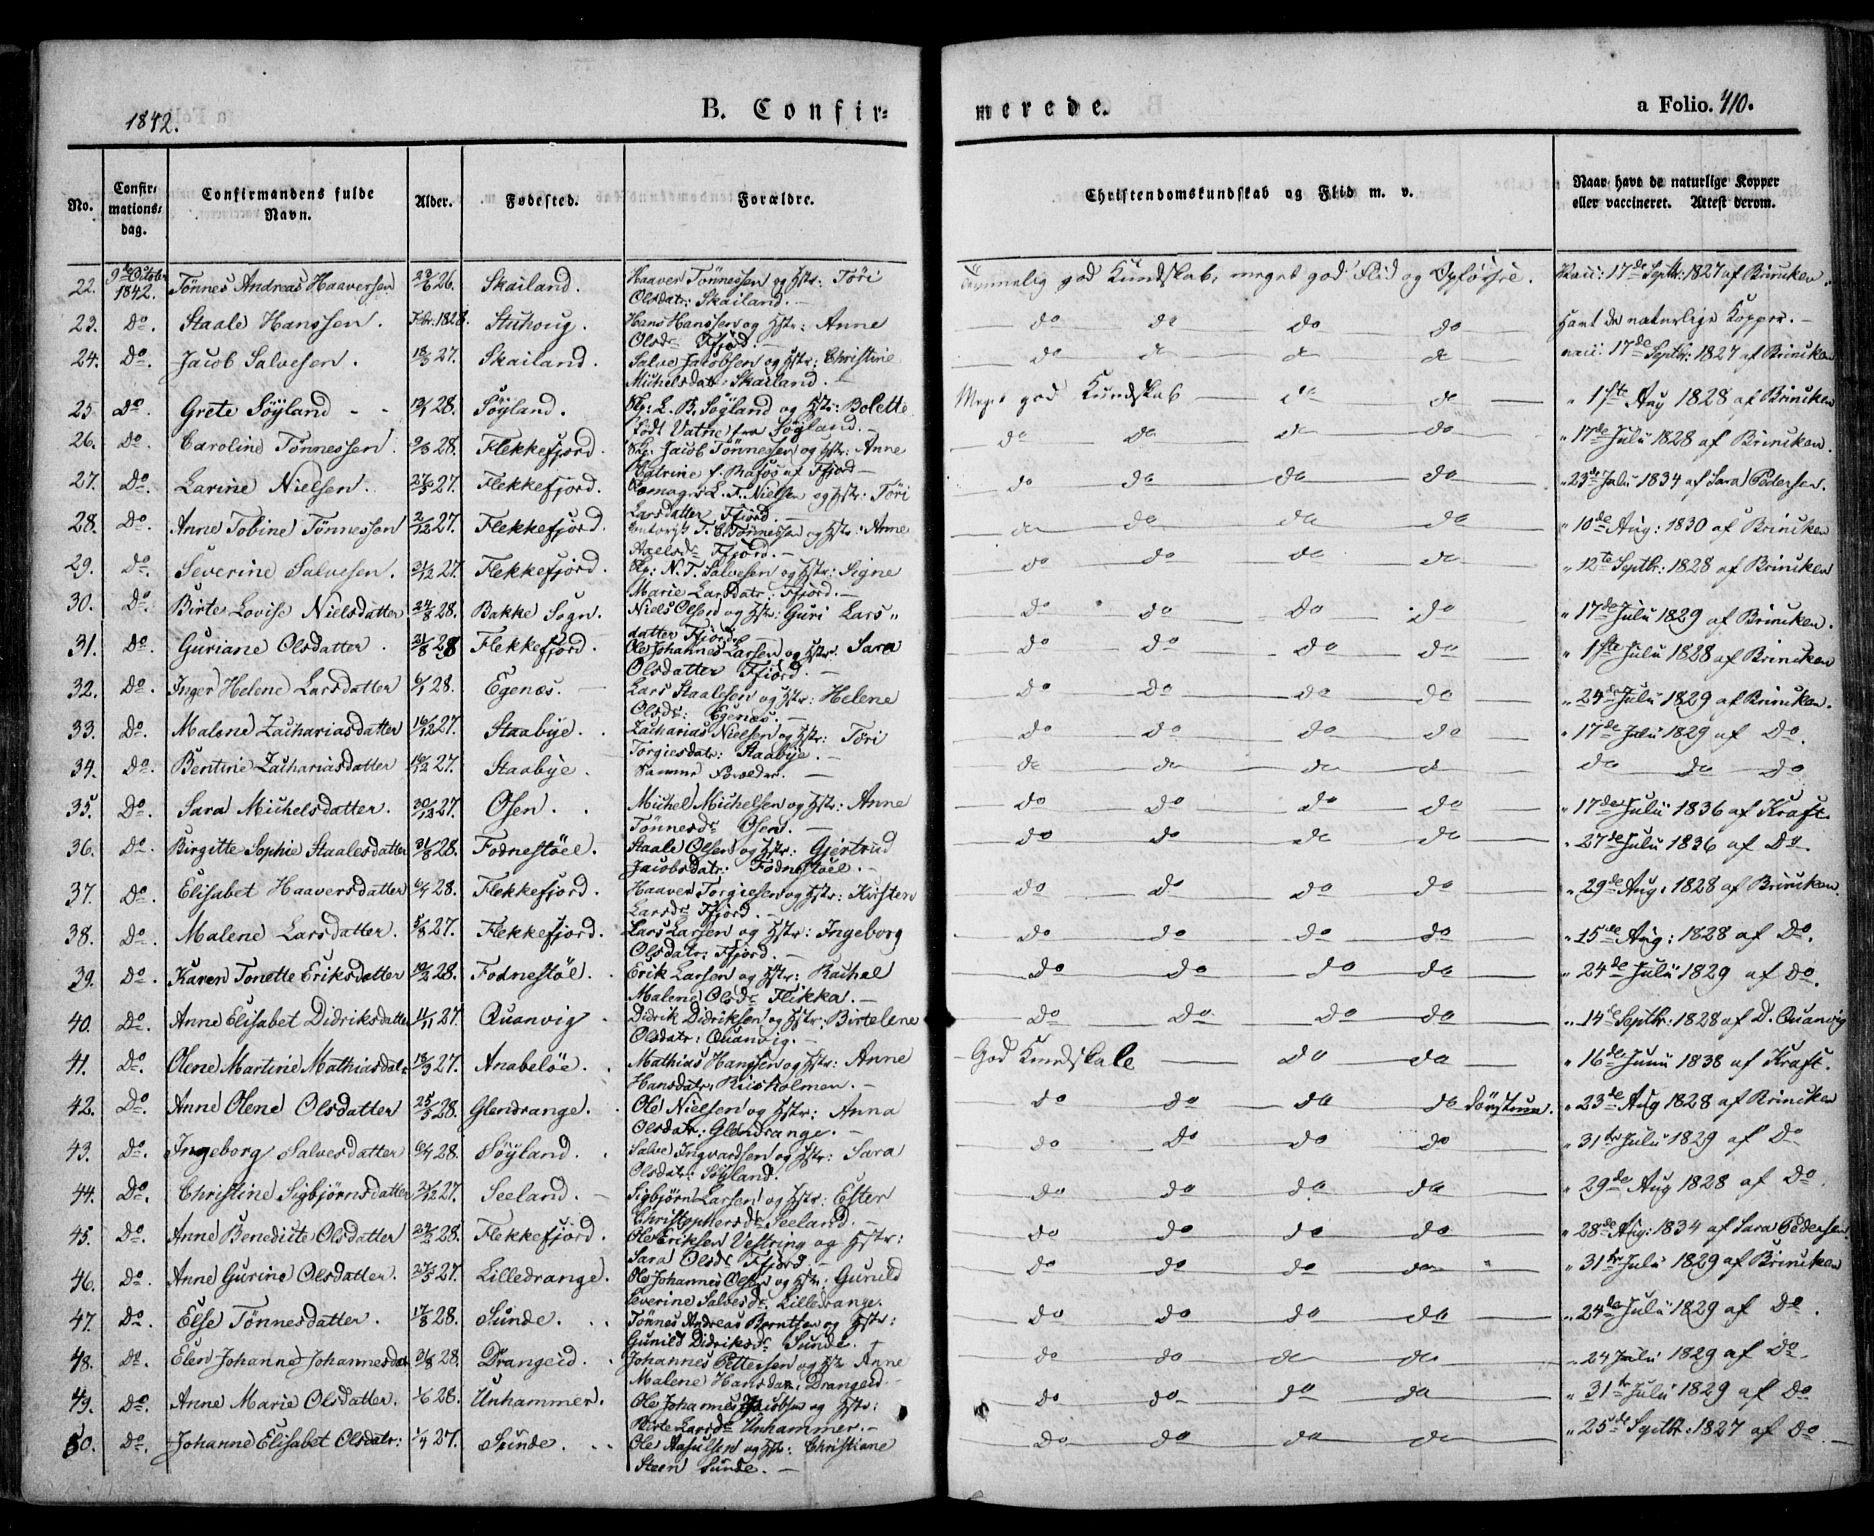 1842.
B. Confir=
merede.
a Folio. 410.
No.
Confir=
mations=
dag.
Confirmandens fulde
Navn.
Alder.
Fødested.
Forældre.
Christendomskundskab og Flid m. v.
Naar havt de naturlige Kopper
eller vaccineret. Attest derom.
22. 9de October 1842. Tønnes Andreas Haaversen 26. Skailand. Haaver Tønnessen og Hstr: Tøri
Olsdatr: Skailand. — Temmelig god Kundskab, meget god Flid og Opførsel. Vacc: 17de Septbr: 1827 af Brincken.
23. Do. Staale Hanssen. Febr. 1828. Stuhoug. Hans Hanssen og Hstr: Anne
Olsdr Ffjord. — do do do do havt de naturlige Kopper. —
24. Do. Jacob Salvesen. 18/3 27. Skailand. Salve Jacobsen og Hstr: Christine
Michelsdatr Skailand. — do do do do vacc: 17de Septbr: 1827 af Brincken
25. Do. Grete Søyland - - 28. Søyland. L. B. Søyland og Hstr: Bolette
født Vatne Søyland. — Meget god Kundskab do do " 1ste Aug 1828 af Brincken
26. Do. Caroline Tønnessen. 28. Flekkefjord. Jacob Tønnessen og Hstr: Anne
Catrine f. Rafos af Ffjord — do do do do " 17de Julii 1828 af Brincken.
27. Do. Larine Nielsen. 27. Flekkefjord. L. F. Nielsen og Hstr: Tøri
Larsdatter Ffjord. — do do do do " 23de Julii 1834 af Sara Pedersen.
28. Do. Anne Tobine Tønnessen 2/12 27. Flekkefjord. T. C. Tønnessen og Hstr: Anne
Axelsdr Ffjord. — do do do do " 10de Aug: 1830 af Brincken
29. Do. Severine Salvesen. 21/12 27. Flekkefjord. N. T. Salvesen og Hstr: Signe
Marie Larsdatr: Ffjord. — do do do do " 12te Septbr: 1828 af Brincken
30. Do. Birte Lovise Nielsdatter 24/8 28. Bakke Sogn. Niels Olsen og Hstr: Guri Lars"
datter Ffjord. — do do do do " 17de Julii 1829 af Brincken.
31. Do. Guriane Olsdatter. 21/8 28 Flekkefjord. Ole Johannes Larsen og Hstr: Sara
Olsdatter Ffjord. — do do do do " 1ste Julii 1828 af Brincken
32. Do. Inger Helene Larsdatter 28. Egenæs. — Lars Staalesen og Hstr: Helene
Olsdr: Egenæs. — do do do do " 24de Julii 1829 af Brincken.
33. Do. Malene Zachariasdatter 16/12 27. Staabye. Zacharias Nielsen og Hstr: Tøri
Torgiesdatr: Staabye. — do do do do " 17de Julii 1829 af Do.
34. Do. Bentine Zachariasdatter 16/12 27. Staabye. Samme Forældre. — do do do do do do do
35. Do. Sara Michelsdatter. 30/12 27. Osen. Michel Michelsen og Hstr: Anne
Tønnesdr Osen. — do do do do " 17de Julii 1836 af Kraft.
36. Do. Birgitte Sophie Staalesdatter 21/8 28. Fodnestøel. Staale Olsen og Hstr: Gjertrud
Jacobsdatr: Fodnestøel. — do do do do " 27de Julii 1836 af Do.
37. Do. Elisabet Haaversdatter 6/4 28. Flekkefjord. Haaver Torgiesen og Hstr: Kirsten
Larsdr Ffjord. — do do do do " 29de Aug: 1828 af Brincken.
38. Do. Malene Larsdatter. 5/8 27. Flekkefjord. Lars Larsen og Hstr: Ingeborg
Olsdatr: Ffjord. — do do do do " 15de Aug: 1828 af Do.
39. Do. Karen Tonette Eriksdatter 10/2 28. Fodnestøl. Erik Larsen og Hstr: Rachel
Malene Olsdr Flikka. — do do do do " 24de Julii 1829 af Do.
40. Do. Anne Elisabet Didriksdatter 11/11 27. Quanvig Didrik Didriksen og Hstr: Birtelene
Olsdatr: Quanvig. — do do do do " 14de Septbr: 1828 af D. Quanvig
41. Do. Olene Martine Mathiasdatr 18/3 27. Anabeløe. Mathias Hanssen og Hstr: Anne
Hansdatr, Risholmen. — God Kundskab do do " 16de Junii 1838 af Kraft.
42. Do. Anne Olene Olsdatter 25/5 28. Glendrange. Ole Nielsen og Hstr: Anna
Olsdatr: Glendrange. — do do do do " 23de Aug 1828 af Brincken
43. Do. Ingeborg Salvesdatter 6/4 28. Søyland. Salve Ingvardsen og Hstr: Sara
Olsdatr: Søyland. do do do do " 31te Julii 1829 af Do
44. Do. Christine Sigbjørnsdatter 27. Seeland. — Sigbjørn Larsen og Hstr: Ester
Christophersdr Seeland. — do do do do " 29de Aug 1828 af Do.
45. Do. Anne Benedicte Olsdatter 24/2 28. Flekkefjord. Ole Eriksen Vestring og Hstr:
Sara Olsdr Ffjord. — do do do do " 28de Aug: 1834 af Sara Pedersen
46. Do. Anne Gurine Olsdatter. 27/5 27. Lilledrange. Ole Johannes Olsen og Hstr: Gunild
Severine Salvesdr Lilledrange. do do do do " 31te Julii 1829 af Brincken
47. Do. Else Tønnesdatter. 17/8 28. Sunde. Tønnes Andreas Berntsen og Hstr:
Gunild Didriksdr Sunde. do do do do " 24de Julii 1829 af Do.
48. Do. Elen Johanne Johannesdatr 21/8 28. Drangeid. Johannes Pettersen og Hstr Anne
Malene Hansdatr. Drangeid. — do do do do " 24 Julii 1829 af Do.
49. Do. Anne Marie Olsdatter. 1/6 28. Unhammer. Ole Johannes Jacobsen og Hstr:
Birte Larsdr Unhammer. — do do do do " 31te Julii 1829 af Do
50. Do. Johanne Elisabet Olsdatr: 1/4 27. Sunde. Ole Aasulsen og Hstr: Christiane
Steen Sunde. — do do do do " 25de Septbr: 1827 af Do —